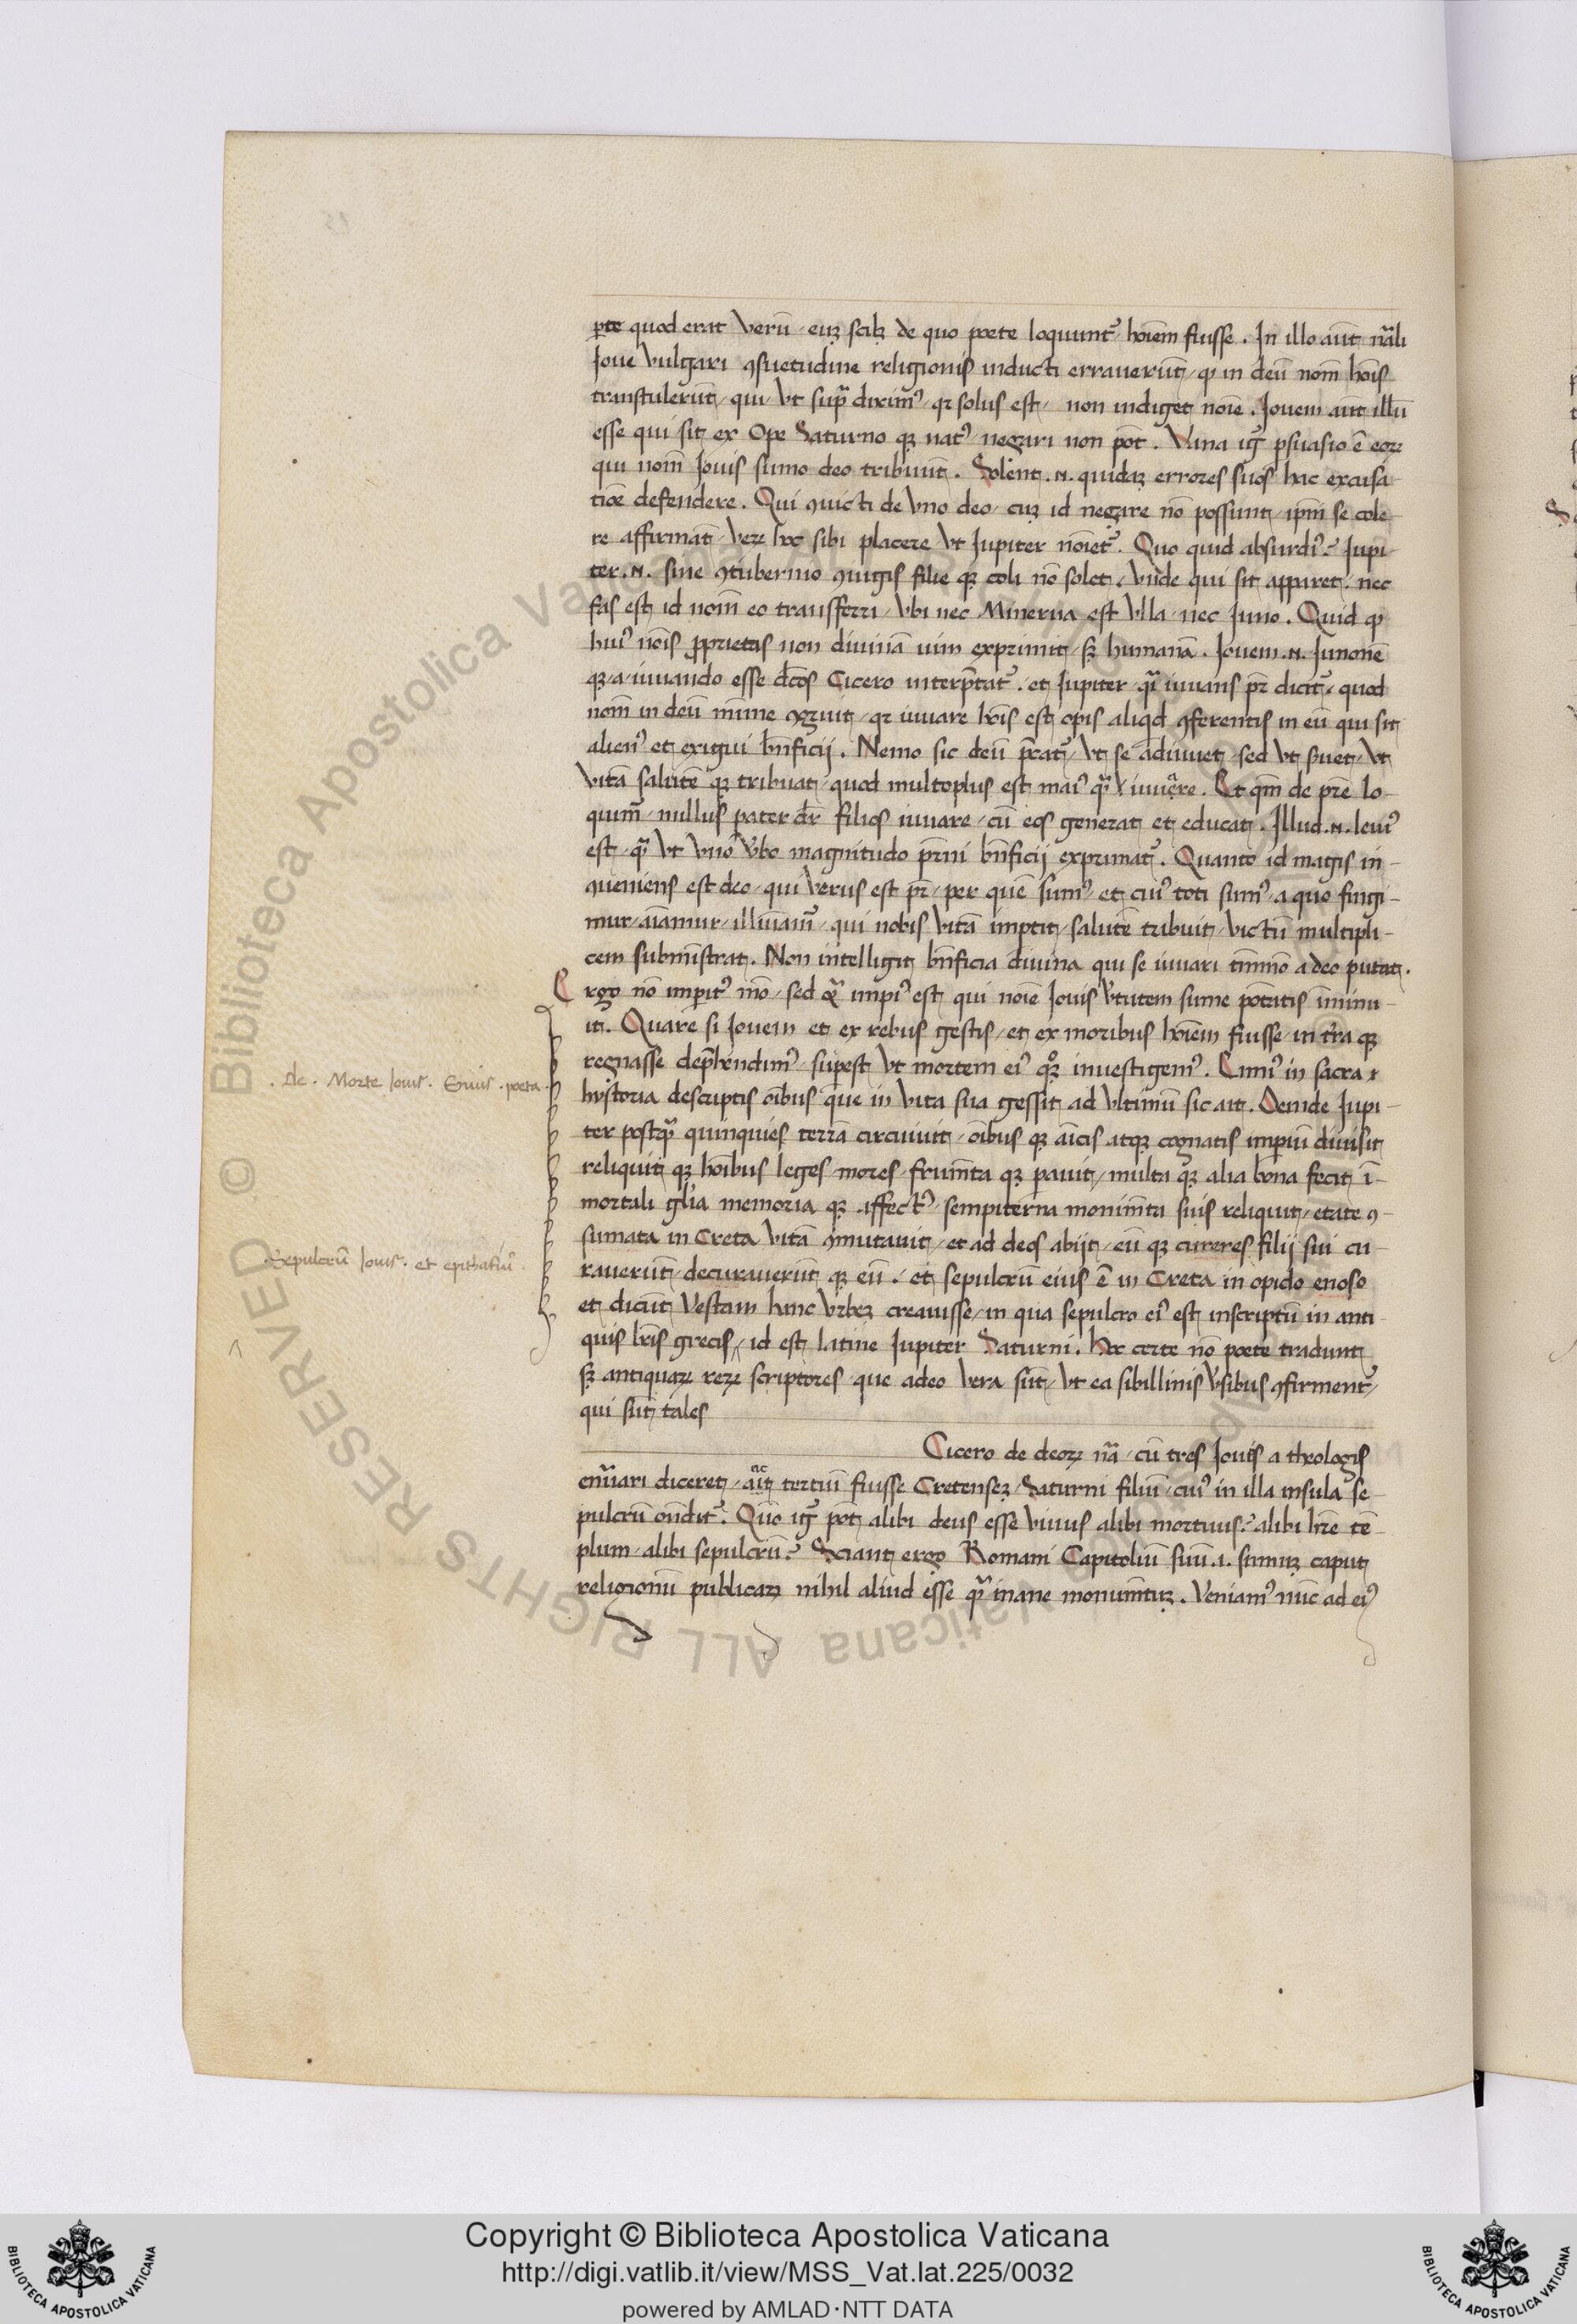 ꝑte quod erat verū / euʒ scilʒ de quo poete loquunt᷑ hoīem fuisse. In illo aūt nāli
Ioue vulgari ꝯsuetudine religionis inducti errauerūt / ꝙ in deū nom̄ hoīs
transtulerūt / qui / vt supͣ diximꝰ / qꝛ solus est / non indiget noīe. Iouem aūt illū
esse qui sit ex Ope Saturno qꝫ natꝰ negari non pōt. Vana igͬ ꝑsuasio ē eoꝝ
qui nom̄ Iouis sumo deo tribuūt. Solent .N. quidaʒ errores suos hac excusa-
tiōe defendere. Qui ꝯuicti de vno deo / cuʒ id negare nō possunt / ip̄m se cole-
re affirmāt / veꝝ hoc sibi placere vt Iupiter noīet᷑. Quo quid absurdiꝰ? Iupi-
ter .N. sine ꝯtubernio ꝯiugis filie qꝫ coli nō solet. Vnde qui sit apparet / nec
fas est id nom̄ eo transferri / vbi nec Minerua est vlla / nec Iuno. Quid ꝙ
huiꝰ noīs ꝓprietas non diuinā uim exprimit / sꝫ humanā. Iouem .N. Iunonē
qꝫ a iuuando esse dc̄os Cicero interp̄tat᷑. et Iupiter / qͣi iuuans pr̄ dicit᷑ / quod
nom̄ in deū mīme ꝯgruit / qꝛ iuuare hoīs est opis aliqd ꝯferentis in eū qui sit
alienꝰ et exigui bn̄ficij. Nemo sic deū p̄cat᷑ / vt se adiuuet / sed vt ẜuet / vt
vitā salutē qꝫ tribuat / quod multo plus est maiꝰ qͣꝫ iuuare. Et qm̄ de pr̄e lo-
quim᷑ / nullus pater dr̄ filios iuuare / cū eos generat et educat. Illud .N. leuiꝰ
est / qͣꝫ vt vno v̄bo magnitudo pr̄ni bn̄ficij exprimat᷑. Quanto id magis in-
ꝯueniens est deo / qui verus est pr̄ / per quē sumꝰ / et cuiꝰ toti sumꝰ / a quo fingi-
mur / aīamur / illuīam᷑ / qui nobis vitā imꝑtit / salutē tribuit / victū multipli-
cem submīstrat. Non intelligit bn̄ficia diuina qui se iuuari tm̄mō a deo putat.
Ergo nō imꝑitꝰ mō / sed etͣ impiꝰ est qui noīe Iouis v̄tutem sume potātis īminu-
it. Quare si Iouem et ex rebus gestis / et ex moribus hoīem fuisse / in tr̄a qꝫ
regnasse dep̄hendimꝰ / suꝑest vt mortem eiꝰ qͦꝫ inuestigemꝰ. Eniꝰ in sacra
hystoria descriptis oībus que in vita sua gessit ad vltimū sic ait. Deinde Iupi-
ter postqͣꝫ quinquies terrā circuiuit / oībus qꝫ aīcis atqꝫ cognatis imꝑiū diuisit
reliquit qꝫ hoībus leges mores / frum̄ta qꝫ ꝑauit / multa qꝫ alia bona fecit / ī-
mortali gl̄ia memoria qꝫ affectꝰ / sempiterna monim̄ta suis reliquit / etate ꝯ-
sumata in Creta vitā ꝯmutauit / et ad deos abijt / eū qꝫ cureres filij sui cu-
rauerūt / decurauerūt qꝫ eū. et sepulcrū eius ē in Creta in opido enoso
et dicūt Vestam hanc vrbeʒ creauisse / in qua sepulcro eiꝰ est inscriptū in anti-
quis lr̄is grecis / id est latine Iupiter Saturni. Hoc certe nō poete tradunt
sꝫ antiquaꝝ reꝝ scriptores / que adeo vera sūt / vt ea sibillinis v̄sibus ꝯfirment᷑ /
qui sūt tales
Cicero de deoꝝ nā / cū tres Ioues a theologis
enūari diceret / ait tertiū fuisse Cretenseʒ / Saturni filiū / cuiꝰ in illa insula se-
pulcrū ondit᷑. Quō igͬ pōt alibi deus esse viuus alibi mortuus? alibi hr̄e tē-
plum / alibi sepulcrū? Sciant ergo Romani Capitoliū suū .i. sumuʒ caput
religionū publicaꝝ nihil aliud esse qͣꝫ inane monum̄tuʒ. Veniamꝰ nūc ad eiꝰ
. de . Morte Iouis . Enius . poeta .
Sepulcrū Iouis . et epithafiū .
Copyright © Biblioteca Apostolica Vaticana
http://digi.vatlib.it/view/MSS_Vat.lat.225/0032
powered by AMLAD·NTT DATA
BIBLIOTECA APOSTOLICA VATICANA
BIBLIOTECA APOSTOLICA VATICANA